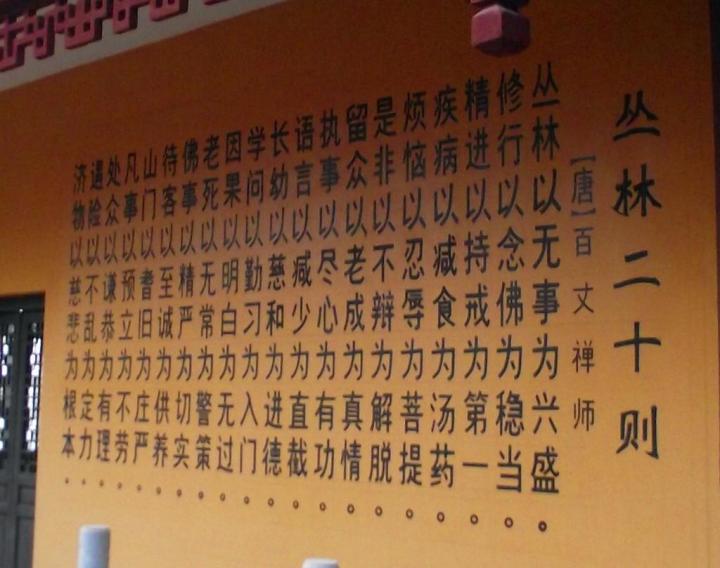 丛林二十则
【唐】百丈禅师
丛林以无事为兴盛。
修行以念佛为稳当。
精进以持戒为第一。
疾病以减食为汤药。
烦恼以忍辱为菩提。
是非以不辩为解脱。
留众以老成为真情。
执事以尽心为有功。
语言以减少为直截。
长幼以慈和为进德。
学问以勤习为入门。
因果以明白为无过。
老死以无常为警策。
佛事以精严为切实。
待客以至诚为供养。
山门以耆旧为庄严。
凡事以预立为不劳。
处众以谦恭为有理。
遇险以不乱为定力。
济物以慈悲为根本。